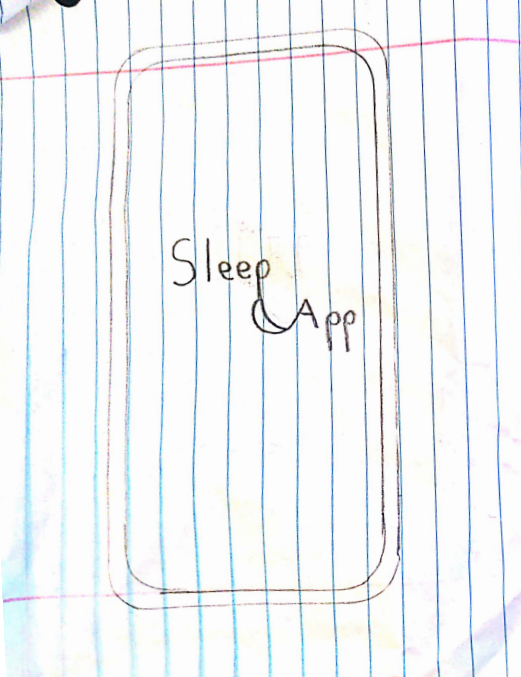 Sleep
App